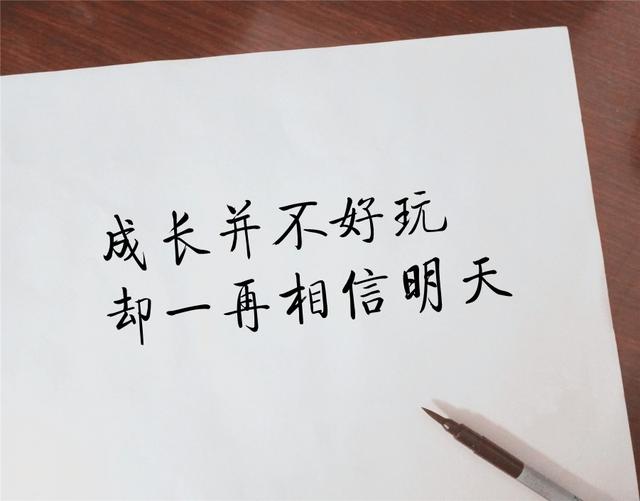 成长并不好玩
却一再相信明天